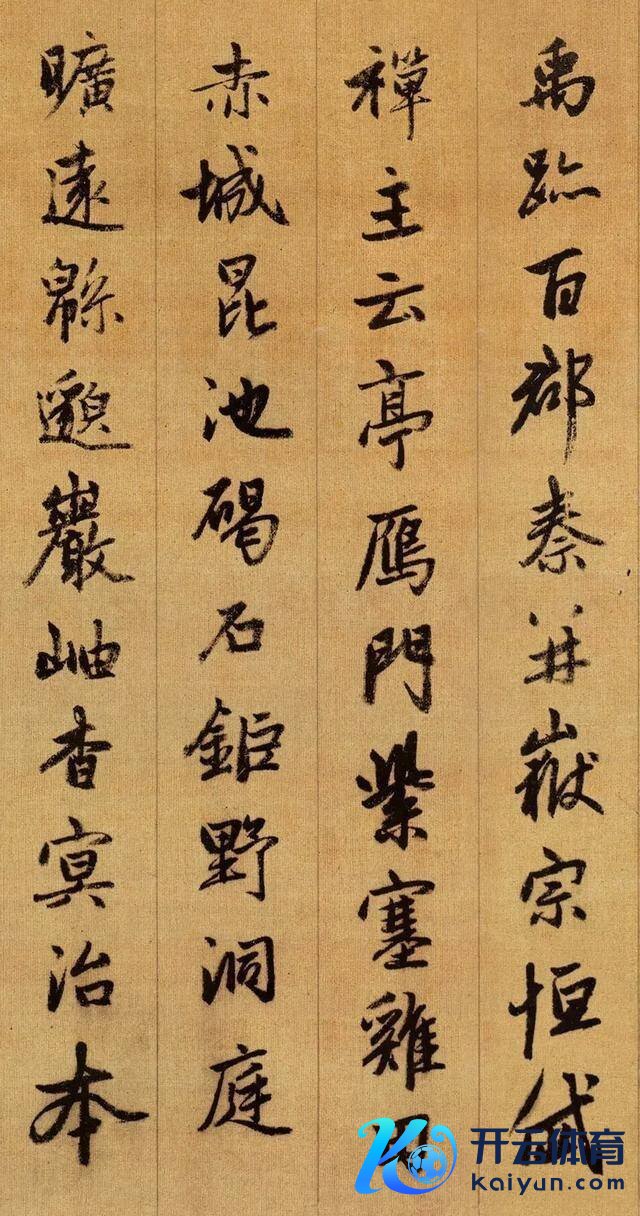 禹跡百郡秦并嶽宗恒岱
禪主云亭鴈門紫塞雞田
赤城昆池碣石鉅野洞庭
曠遠緜邈巖岫杳冥治本
开云体育
kaiyun.com